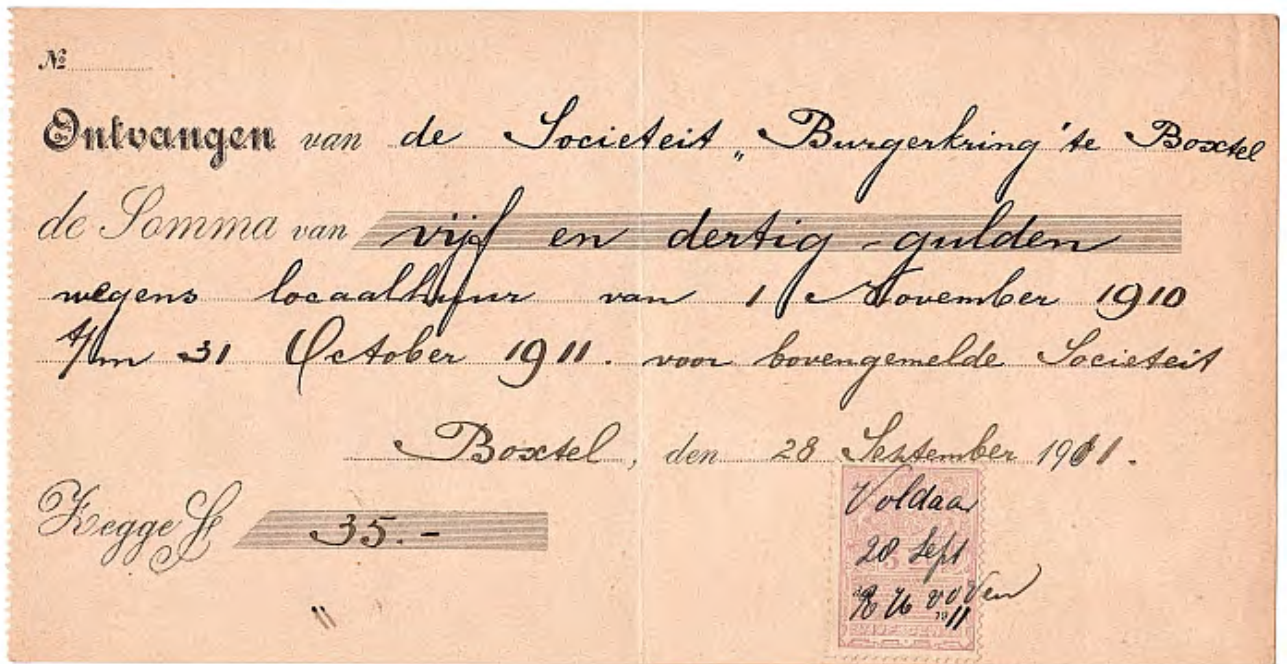 №
Ontvangen van de Societeit „Burgerkring" te Boxtel
de Somma van vijf en dertig gulden
wegens locaalhuur van 1 November 1910
t/m 31 October 1911. voor bovengemelde Societeit
Boxtel, den 28 September 1911.
Zegge ƒ 35.-
Voldaan
28 Sept
vd Ven
1911